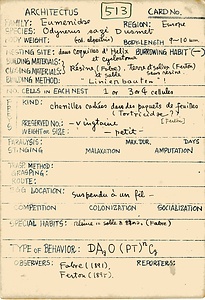 ARCHITECTUS 513 CARD NO.
FAMILY: Eumenidae REGION: Europe
SPECIES: Odynerus sazi Dusmet
BODY WEIGHT: BODYLENGTH 9-10 mm
NESTING SITE: dans coquilles d'Helix BURROWING HABIT (—)
BUILDING MATERIALS: et cyclostoma
CLOSING MATERIALS: Résine (Fabre), Terre et salive (Ferton)
et sable sans résine
BUILDING METHOD: Linienbauten
NO. CELLS IN EACH NEST 1 or 3 or 4 cellules
KIND: chenilles cachées dans des paquets de feuilles
(Tortricidae?)
PRESERVED NO.: ~ vingtaine (Ferton)
WEIGHT OR SIZE: — petit —
PARALYSIS: MAX. DUR. DAYS
STINGING MALAXATION AMPUTATION
TRSP. METHOD:
GRASPING:
ROUTE:
EGG LOCATION: suspendu à un fil —
COMPETITION COLONIZATION SOCIALIZATION
SPECIAL HABITS: (Fabre)
TYPE OF BEHAVIOR:
OBSERVERS: Fabre (1891). REPORTERS:
Ferton (1895).